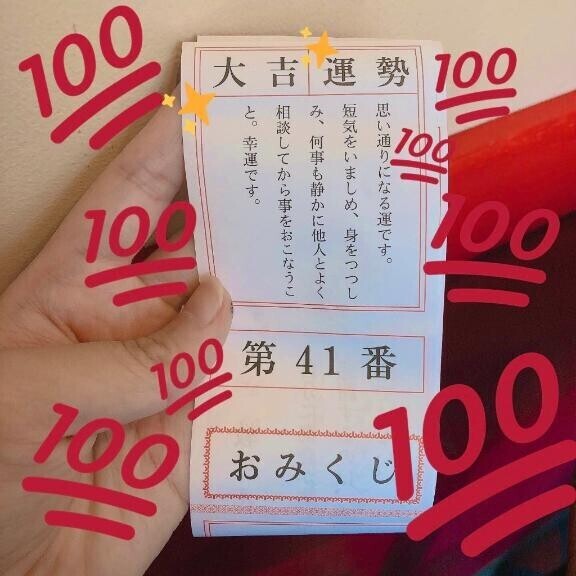 100
大吉 運勢
100
思い通りになる運です。
短気をいましめ、身をつつし
み、何事も静かに他人とよく
相談してから事をおこなうこ
と。幸運です。
100
100
100
第41番
100
100
100
おみくじ